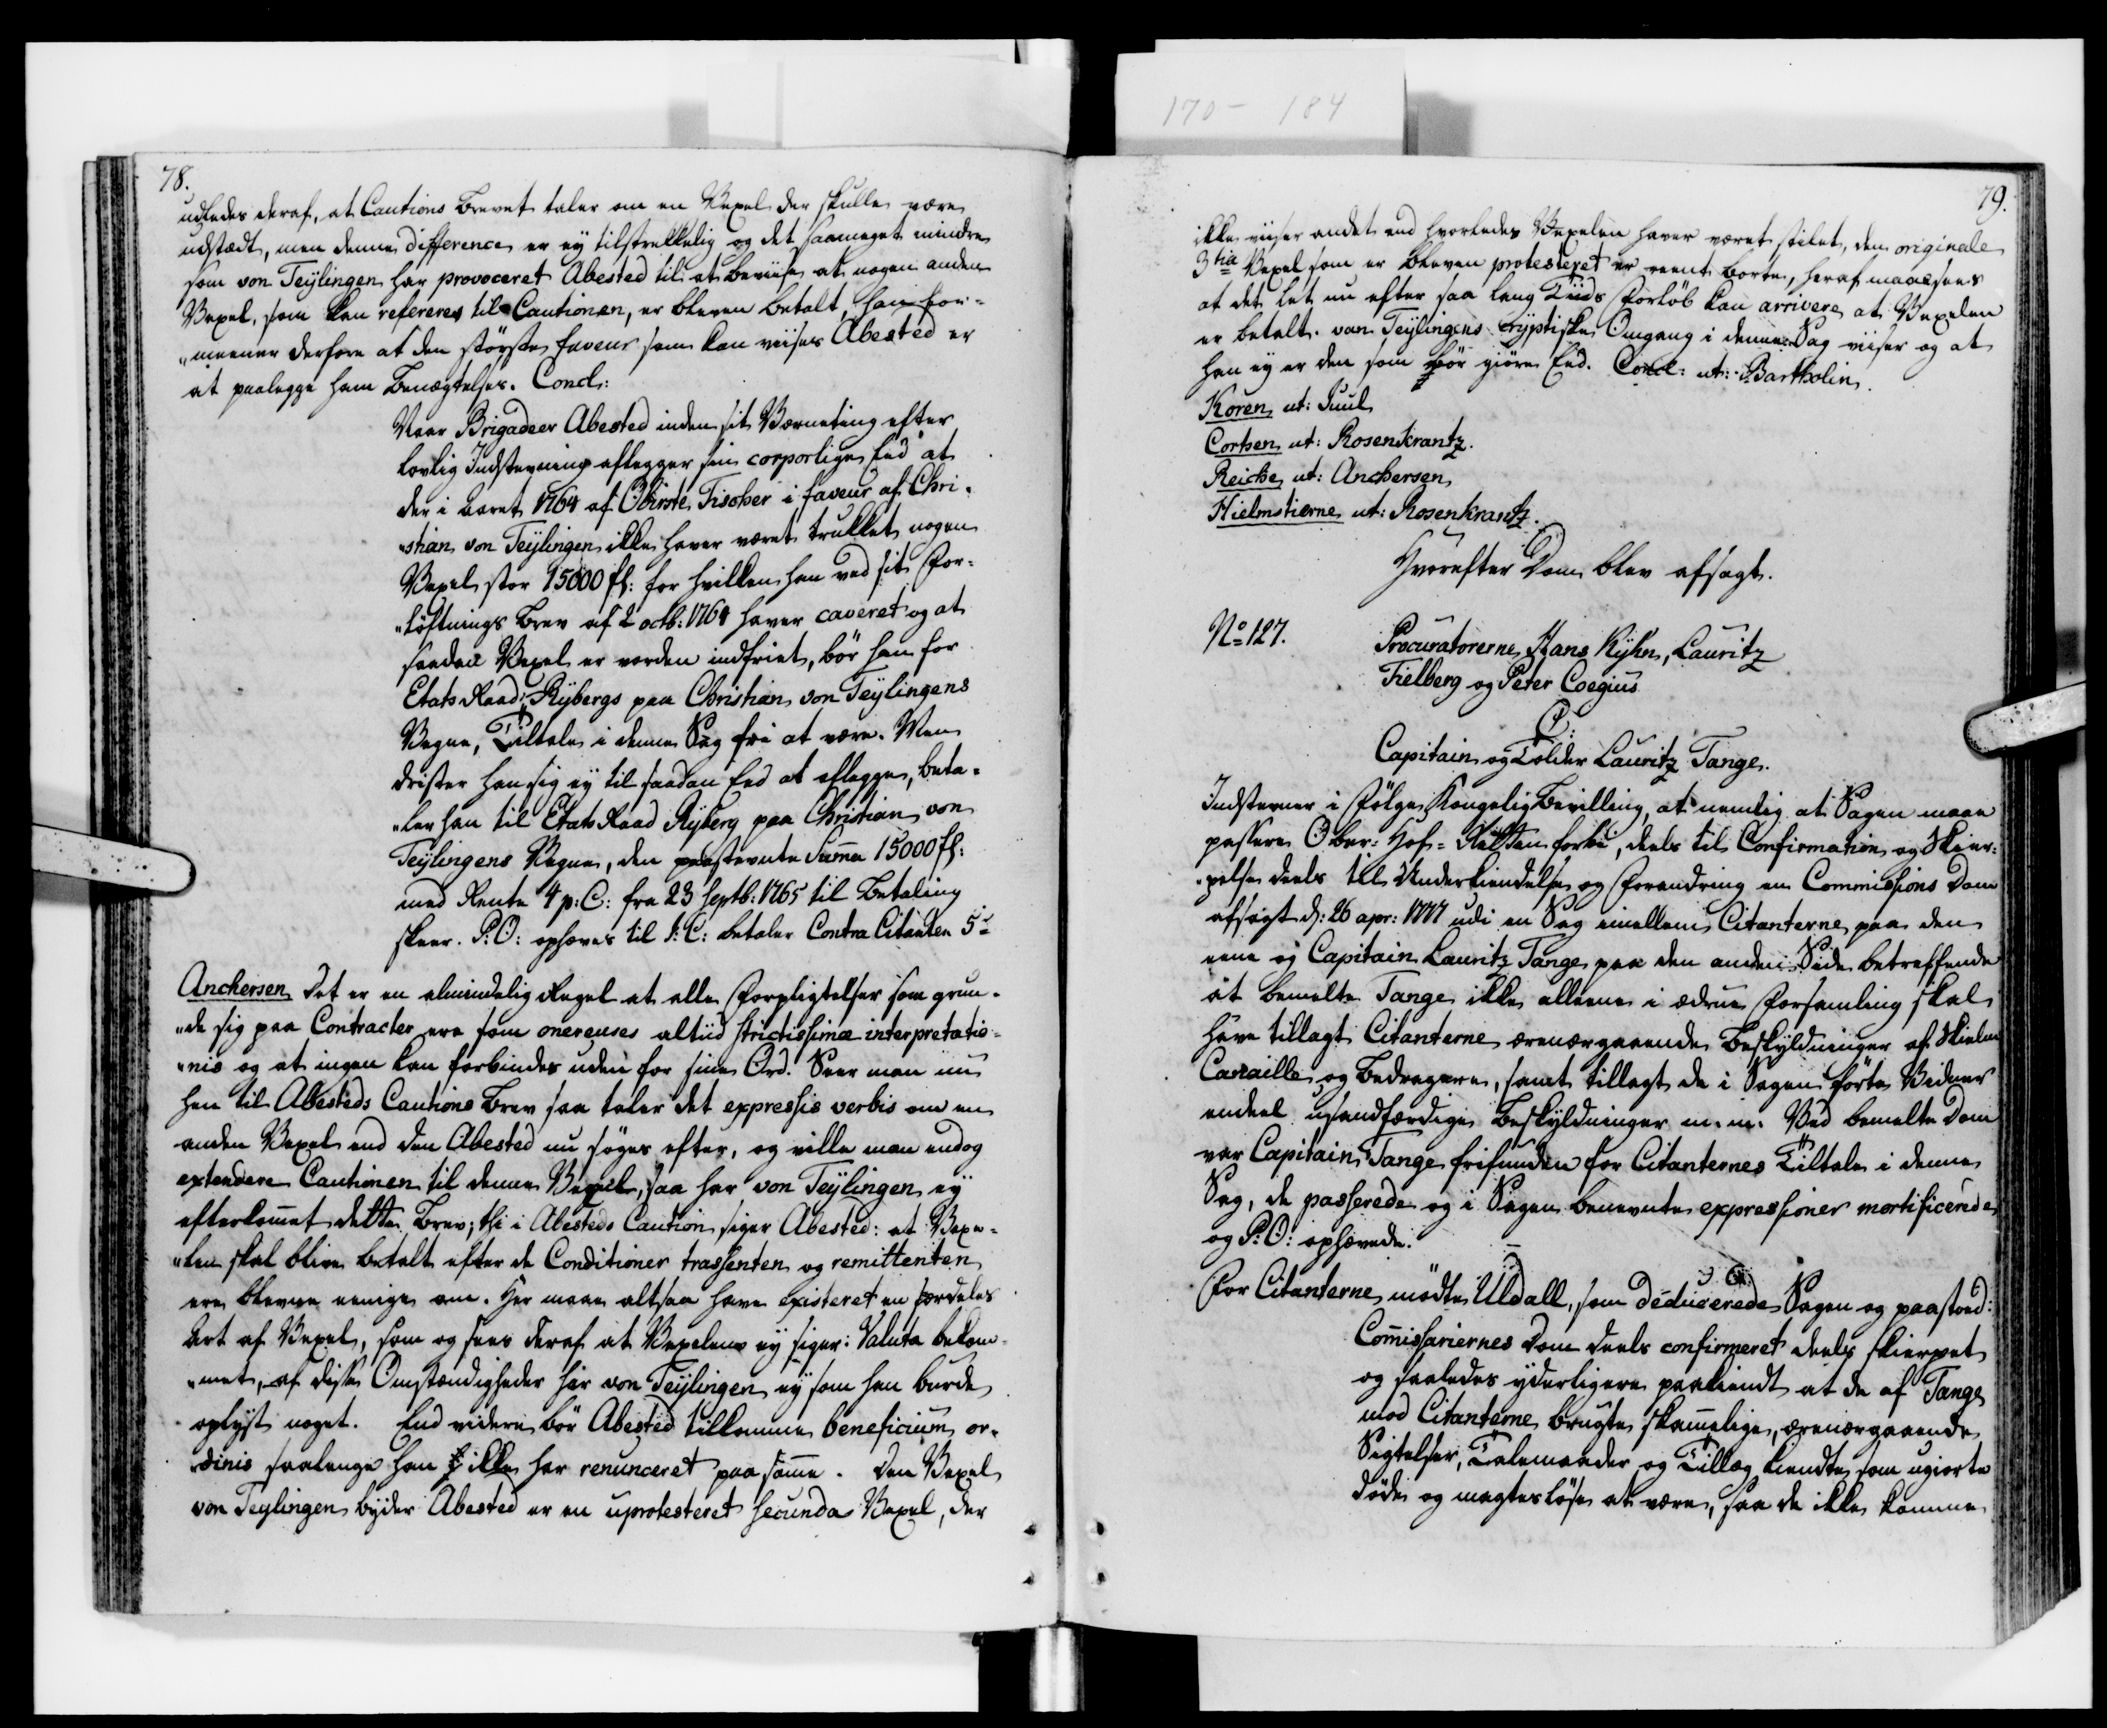 170 - 184
78.
udledes deraf, at Cautions Brevet taler om en Vexel der skulle være
udstædt, men denne difference er ey tilstrekkelig og det saameget mindre
som von Teÿlingen har provoceret Abested til at beviise at nogen anden
Vexel, som kan refereres til Cautionen, er bleven betalt, han for-
„meener derfore at den störste faveur som kan viises Abested er
at paalegge ham Benægtelses. Concl:
Naar Brigadeer Abested inden sit Værneting efter
lovlig Indstevning aflegger sin corporlige Eed at
der i Aaret 1764 af Obirste Fischer i faveur af Chri-
„stian von Teÿlingen ikke haver været trukket nogen
Vexel stor 15000 fl: for hvilken han ved sit For-
„löftnings Brev af 2 octb: 1764 haver caveret og at
saadan Vexel er vorden indfriet, bör han for
Etats Raad Rÿbergs paa Christian von Teÿlingens
Vegne, Tiltale i denne Sag fri at være. Men
drister han sig ey til saadan Eed at aflegge, beta-
„ler han til Etats Raad Rÿberg paa Christian von
Teÿlingens Vegne, den paastevnte Summa 15000 fl:
med Rente 4 p: C: fra 23 Septb: 1765 til Betaling
skeer. P: O: ophæves til J: C: betaler Contra Citanten 5
Anchersen Det er en almindelig Regel at alle Forpligtelser som grun-
„de sig paa Contracter ere som onereuses altiid strictissimæ interpretatio-
„nis og at ingen kan forbindes uden for sine Ord. Seer man nu
hen til Abesteds Cautions Brev saa taler det expressis verbis om en
anden Vexel end den Abested nu söges efter, og ville man endog
extendere Cautionen til denne Vexel, saa har von Teÿlingen eÿ
efterkomet dette Brev; thi i Abesteds Caution siger Abested: at Vexe-
„len skal blive betalt efter de Conditioner trassenten og remittenten
ere blevne eenige om. Her maae altsaa have existeret en særdeles
Art af Vexel, som og sees deraf at Vexelen eÿ siger: Valuta bekom-
„met, af disse Omstændigheder har von Teÿlingen eÿ som han burde
oplyst noget. End videre bör Abested tilkomme beneficium or-
„dinis saalenge han ikke har renunceret paa same. Den Vexel
von Teylingen byder Abested er en uprotesteret Secunda Vexel, der
79.
ikke viiser andet end hvorledes Vexelen haver været stilet, den originale
3tia Vexel som er bleven protesteret er reent borte, heraf maae sees
at det let nu efter saa lang Tiids Forlöb kan arrivere at Vexelen
er betalt. van Teÿlingens cryptiske Omgang i denne Sag viiser og at
han eÿ er den som bör giöre Eed. Concl: ut: Bartholin.
Koren ut: Juul
Cortsen ut: Rosenkrantz.
Reiche ut: Anchersen
Hielmstierne ut: Rosenkrantz.
Hvorefter Dom blev afsagt.
No 127.
Procuratorerne Hans Kÿhn, Lauritz
Fielberg og Peter Coegius
C:
Capitain og Tolder Lauritz Tange.
Indstevner i Fölge Kongelig Bevilling, at nemlig at Sagen maae
passere Ober-Hof-Retten forbi, deels til Confirmation og Skier-
„pelse deels til Underkiendelse og Forandring en Commissions Dom
afsagt d: 26 apr: 1777 udi en Sag imellem Citanterne paa den
eene og Capitain Lauritz Tange paa den anden Side betreffende
at bemelte Tange ikke alleene i ædrue Forsamling skal
have tillagt Citanterne ærenærgaaende Beskyldninger af Skielm
Canaille og Bedragere, samt tillagt de i Sagen förte Vidner
endeel usandfærdige Beskyldninger m. m. Ved bemelte Dom
var Capitain Tange frifunden for Citanternes Tiltale i denne
Sag, de passerede og i Sagen benevnte expressioner mortificerede
og P: O: ophævede.
For Citanterne mödte Uldall, som deducerede Sagen og paastod:
Comissariernes Dom deels confirmeret deels skierpet
og saaledes yderligere paakiendt at de af Tange
mod Citanterne brugte skamelige, ærenærgaaende
Sigtelser, Talemaader og Tillæg kiendtes som ugiorte
döde og magteslöse at være, saa de ikke komme